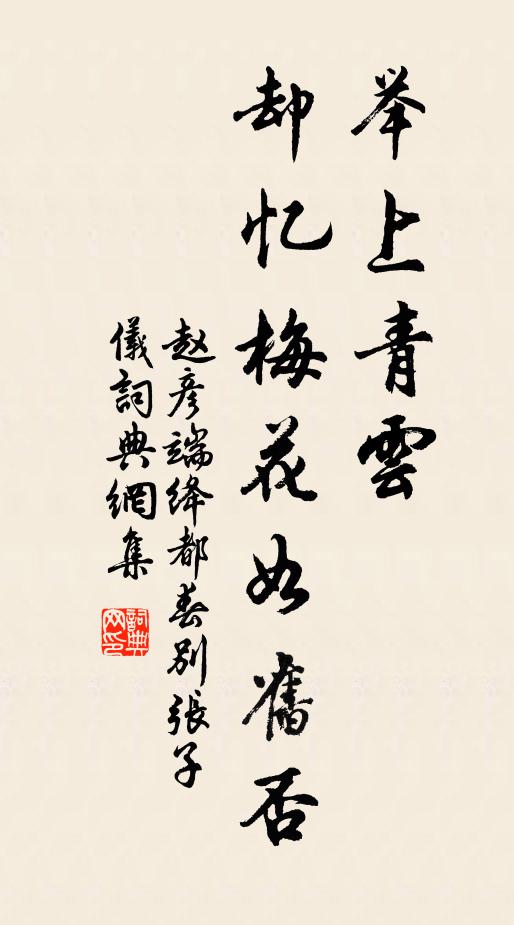 举上青雲
却忆梅花如舊否
赵彦端绛都春别張子
儀詞典網集
詞典
网印